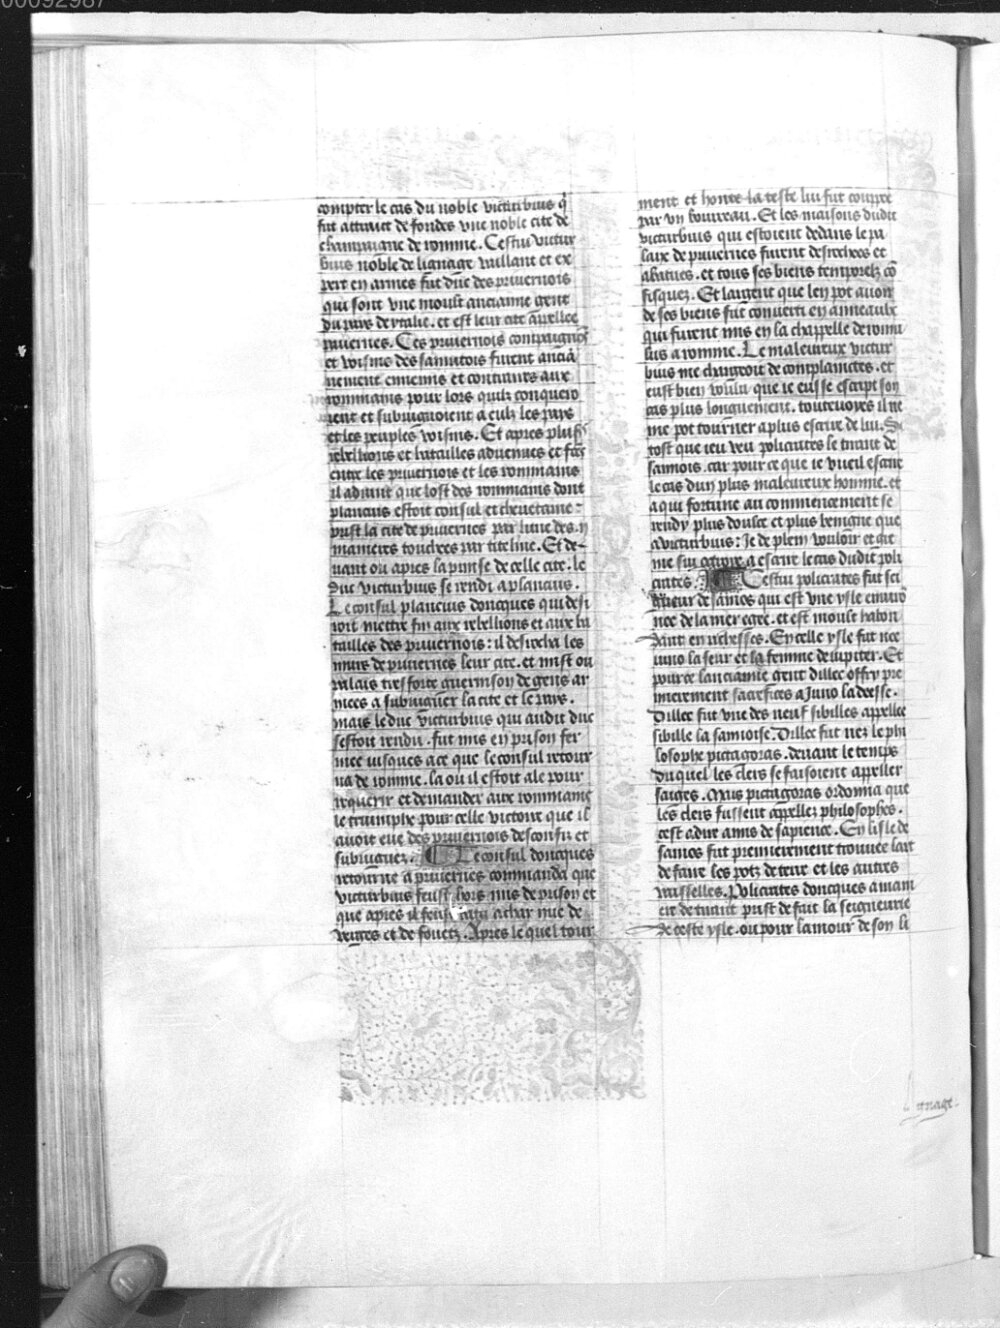 00092987
compter le cas du noble victurbius q̄
fut attraict de fondes vne noble cite de
champaigne de romme. Cestui victur
bius noble de lignage vaillant et ex
pert en armes fut duc des priuernois
qui sont vne moult ancianne gent
du pays dytalie. et est leur cite appellee
priuernes. Ces priuernois compaignōs
et voisins des samnitois furent anciā
nement ennemis et contraires aux
rommains pour lors quilz conquero
rent et subiuguoient a eulx les pays
et les peuples voisins. Et apres plus
rebellions et batailles aduenues et fāc
entre les priuernois et les rommains
il aduint que lost des rommains dont
plancius estoit consul et cheuetaine
prist la cite de priuernes par lune des ij
manieres touchees par titeliue. Et de
uant ou apres la prinse de celle cite. le
duc victurbius se rendi a plancius.
Le consul plancius doncques qui desi
roit mettre fin aux rebellions et aux ba
tailles des priuernois: il desrocha les
murs de priuernes leur cite. et mist ou
palais tresforte guernison de gens ar
mees a subiuguer la cite et le pays.
mais le duc victurbius qui audit duc
sestoit rendu. fut mis en prison fer
mee iusques a ce que le consul retour
na de romme. la ou il estoit ale pour
requerir et demander aux rommains
le triumphe pour celle victoire que il
auoit eue des priuernois desconfis et
subiuguez. Le consul doncques
retourne a priuernes commanda que
victurbius feust hors mis de prison et
que apres il feust batu a char nue de
verges et de fouetz. Apres le quel tour
ment et honte la teste lui fut couppee
par vn bourreau. Et les maisons dudit
victurbius qui estoient dedans le pa
laix de priuernes furent desrochees et
abatues. et tous ses biens temporelz cō
fisquez. Et largent que len pot auoir
de ses biens fut conuerti en anneaulx
qui furent mis en la chappelle de romu
lus a romme. Le maleureux victur
bius me chargeoit de complainctes. et
eust bien voulu que ie eusse escript son
cas plus longuement. toutesuoyes il ne
me pot tourner a plus escrire de lui. Si
tost que ieu veu policrates le tirant de
samois. car pour ce que ie vueil escrire
le cas dun plus maleureux homme. et
a qui fortune au commencement se
rendy plus doulce et plus benigne que
a victurbius: Je de plein vouloir et gre
me sui occupe a escrire le cas dudit poli
crates. Cestui policrates fut sei
gneur de samos qui est vne ysle enuirō
nee de la mer egee. et est moult habon
dant en richesses. En celle ysle fut nee
iuno la seur et la femme de iupiter. Et
pource lancianne gent dillec offry pre
mierement sacrefices a Juno la deesse.
Dillec fut vne des neuf sibilles appellee
sibille la samioise. Dillec fut nez le phi
losophe pictagoras. deuant le temps
duquel les clers se faisoient appeller
saiges. Mais pictagoras ordonna que
les clers fussent appellez philosophes.
cest a dire amis de sapience. En lisle de
samos fut premierement trouuee lart
de faire les potz de terre et les autres
vaisselles. Policrates doncques a mani
ere de tirant prist de fait la seigneurie
de ceste ysle. ou pour lamour de son li
gnage.